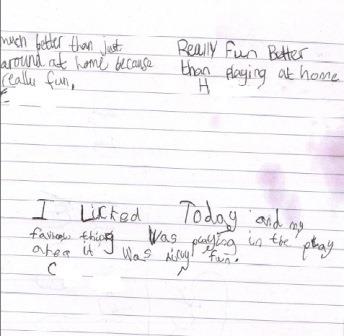 much better than just
around at home because
really fun.
Really Fun Better
than playing at home
H
I Licked Today and my
favrow thing Was playing in the play
area it Was rilly fun.
C